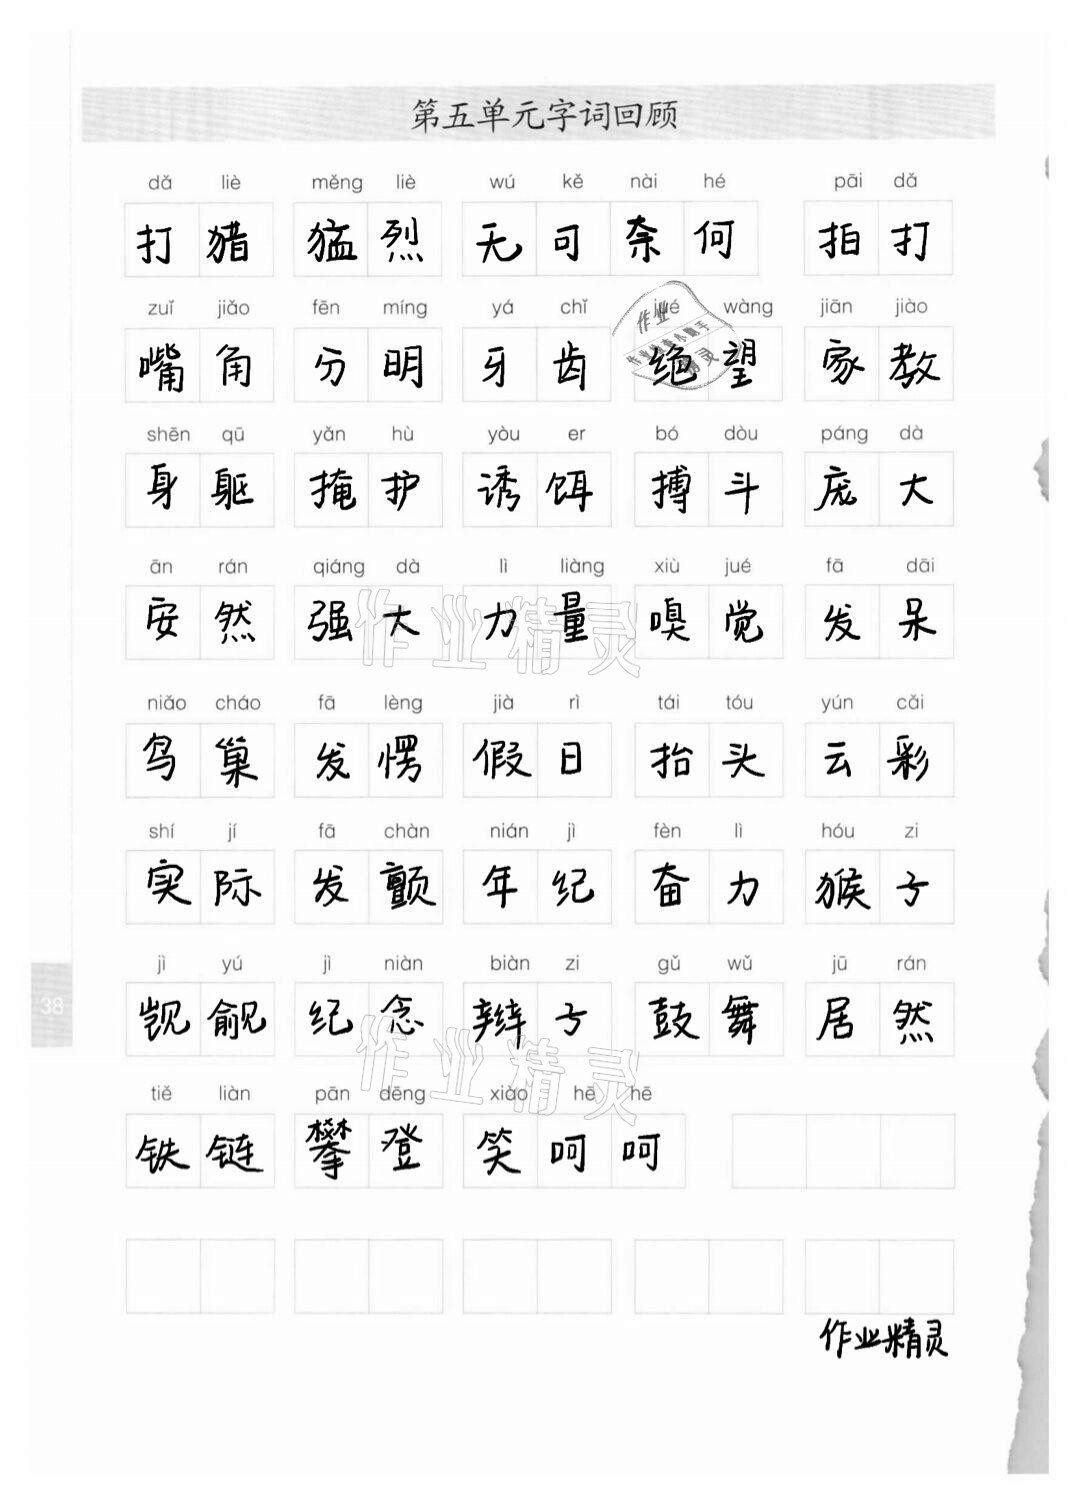 第五单元字词回顾
dǎ liè měng liè wú kě nài hé pāi dǎ
打 猎 猛 烈 无 可 奈 何 拍 打
zuǐ jiǎo fēn míng yá chǐ jué wàng jiān jiào
嘴 角 分 明 牙 齿 绝 望 家 教
shēn qū yǎn hù yòu er bó dòu páng dà
身 躯 掩 护 诱 饵 搏 斗 庞 大
ān rán qiáng dà lì liàng xiù jué fā dāi
安 然 强 大 力 量 嗅 觉 发 呆
niǎo cháo fā lèng jià rì tái tóu yún cǎi
鸟 巢 发 愣 假 日 抬 头 云 彩
shí jí fā chàn nián jì fèn lì hóu zi
实 际 发 颤 年 纪 奋 力 猴 子
jì yú jì niàn biàn zi gǔ wǔ jū rán
觊 觎 纪 念 辫 子 鼓 舞 居 然
38
tiě liàn pān dēng xiào hē hē
铁 链 攀 登 笑 呵 呵
作业精灵
作业精灵
作业精灵
作业
精灵